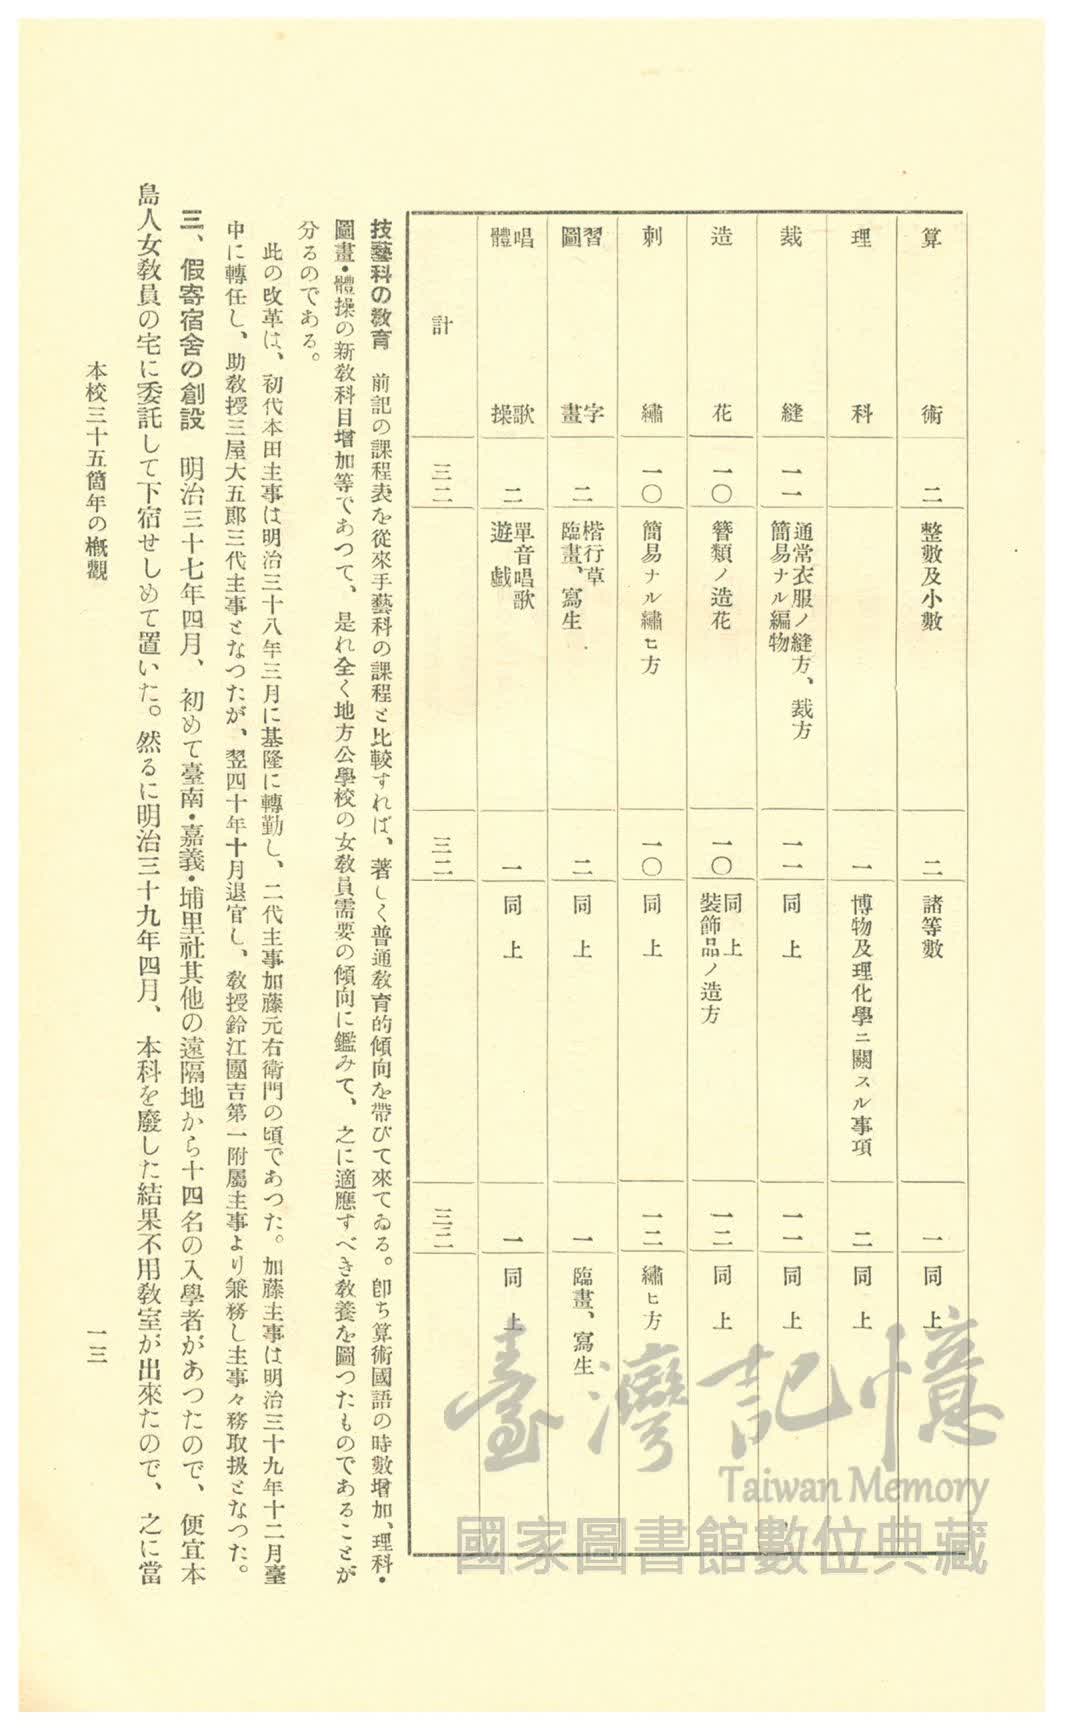 算術 二 整數及小數 二 諸等數 一 同上
理科 一 博物及理化學ニ關スル事項 二 同上
裁縫 一一 通常衣服ノ縫方、裁方 簡易ナル編物 一一 同上 一一 同上
造花 一〇 簪類ノ造花 一〇 同上 裝飾品ノ造方 一二 同上
刺繡 一〇 簡易ナル繡ヒ方 一〇 同上 一二 繡ヒ方
習字 圖畫 二 楷行草 臨畫、寫生 二 同上 一 臨畫、寫生
唱歌 體操 二 單音唱歌 遊戲 一 同上 一 同上
計 三二 三二 三二
技藝科の敎育 前記の課程表を從來手藝科の課程と比較すれば、著しく普通敎育的傾向を帶びて來てゐる。卽ち算術國語の時數增加、理科・
圖畫・體操の新敎科目增加等であつて、是れ全く地方公學校の女敎員需要の傾向に鑑みて、之に適應すべき敎養を圖つたものであることが
分るのである。
此の改革は、初代本田主事は明治三十八年三月に基隆に轉勤し、二代主事加藤元右衞門の頃であつた。加藤主事は明治三十九年十二月臺
中に轉任し、助敎授三屋大五郞三代主事となつたが、翌四十年十月退官し、敎授鈴江團吉第一附屬主事より兼務し主事々務取扱となつた。
三、假寄宿舍の創設 明治三十七年四月、初めて臺南・嘉義・埔里社其他の遠隔地から十四名の入學者があつたので、便宜本
島人女敎員の宅に委託して下宿せしめて置いた。然るに明治三十九年四月、本科を廢した結果不用敎室が出來たので、之に當
本校三十五箇年の槪觀
一三
臺灣記憶
Taiwan Memory
國家圖書館數位典藏